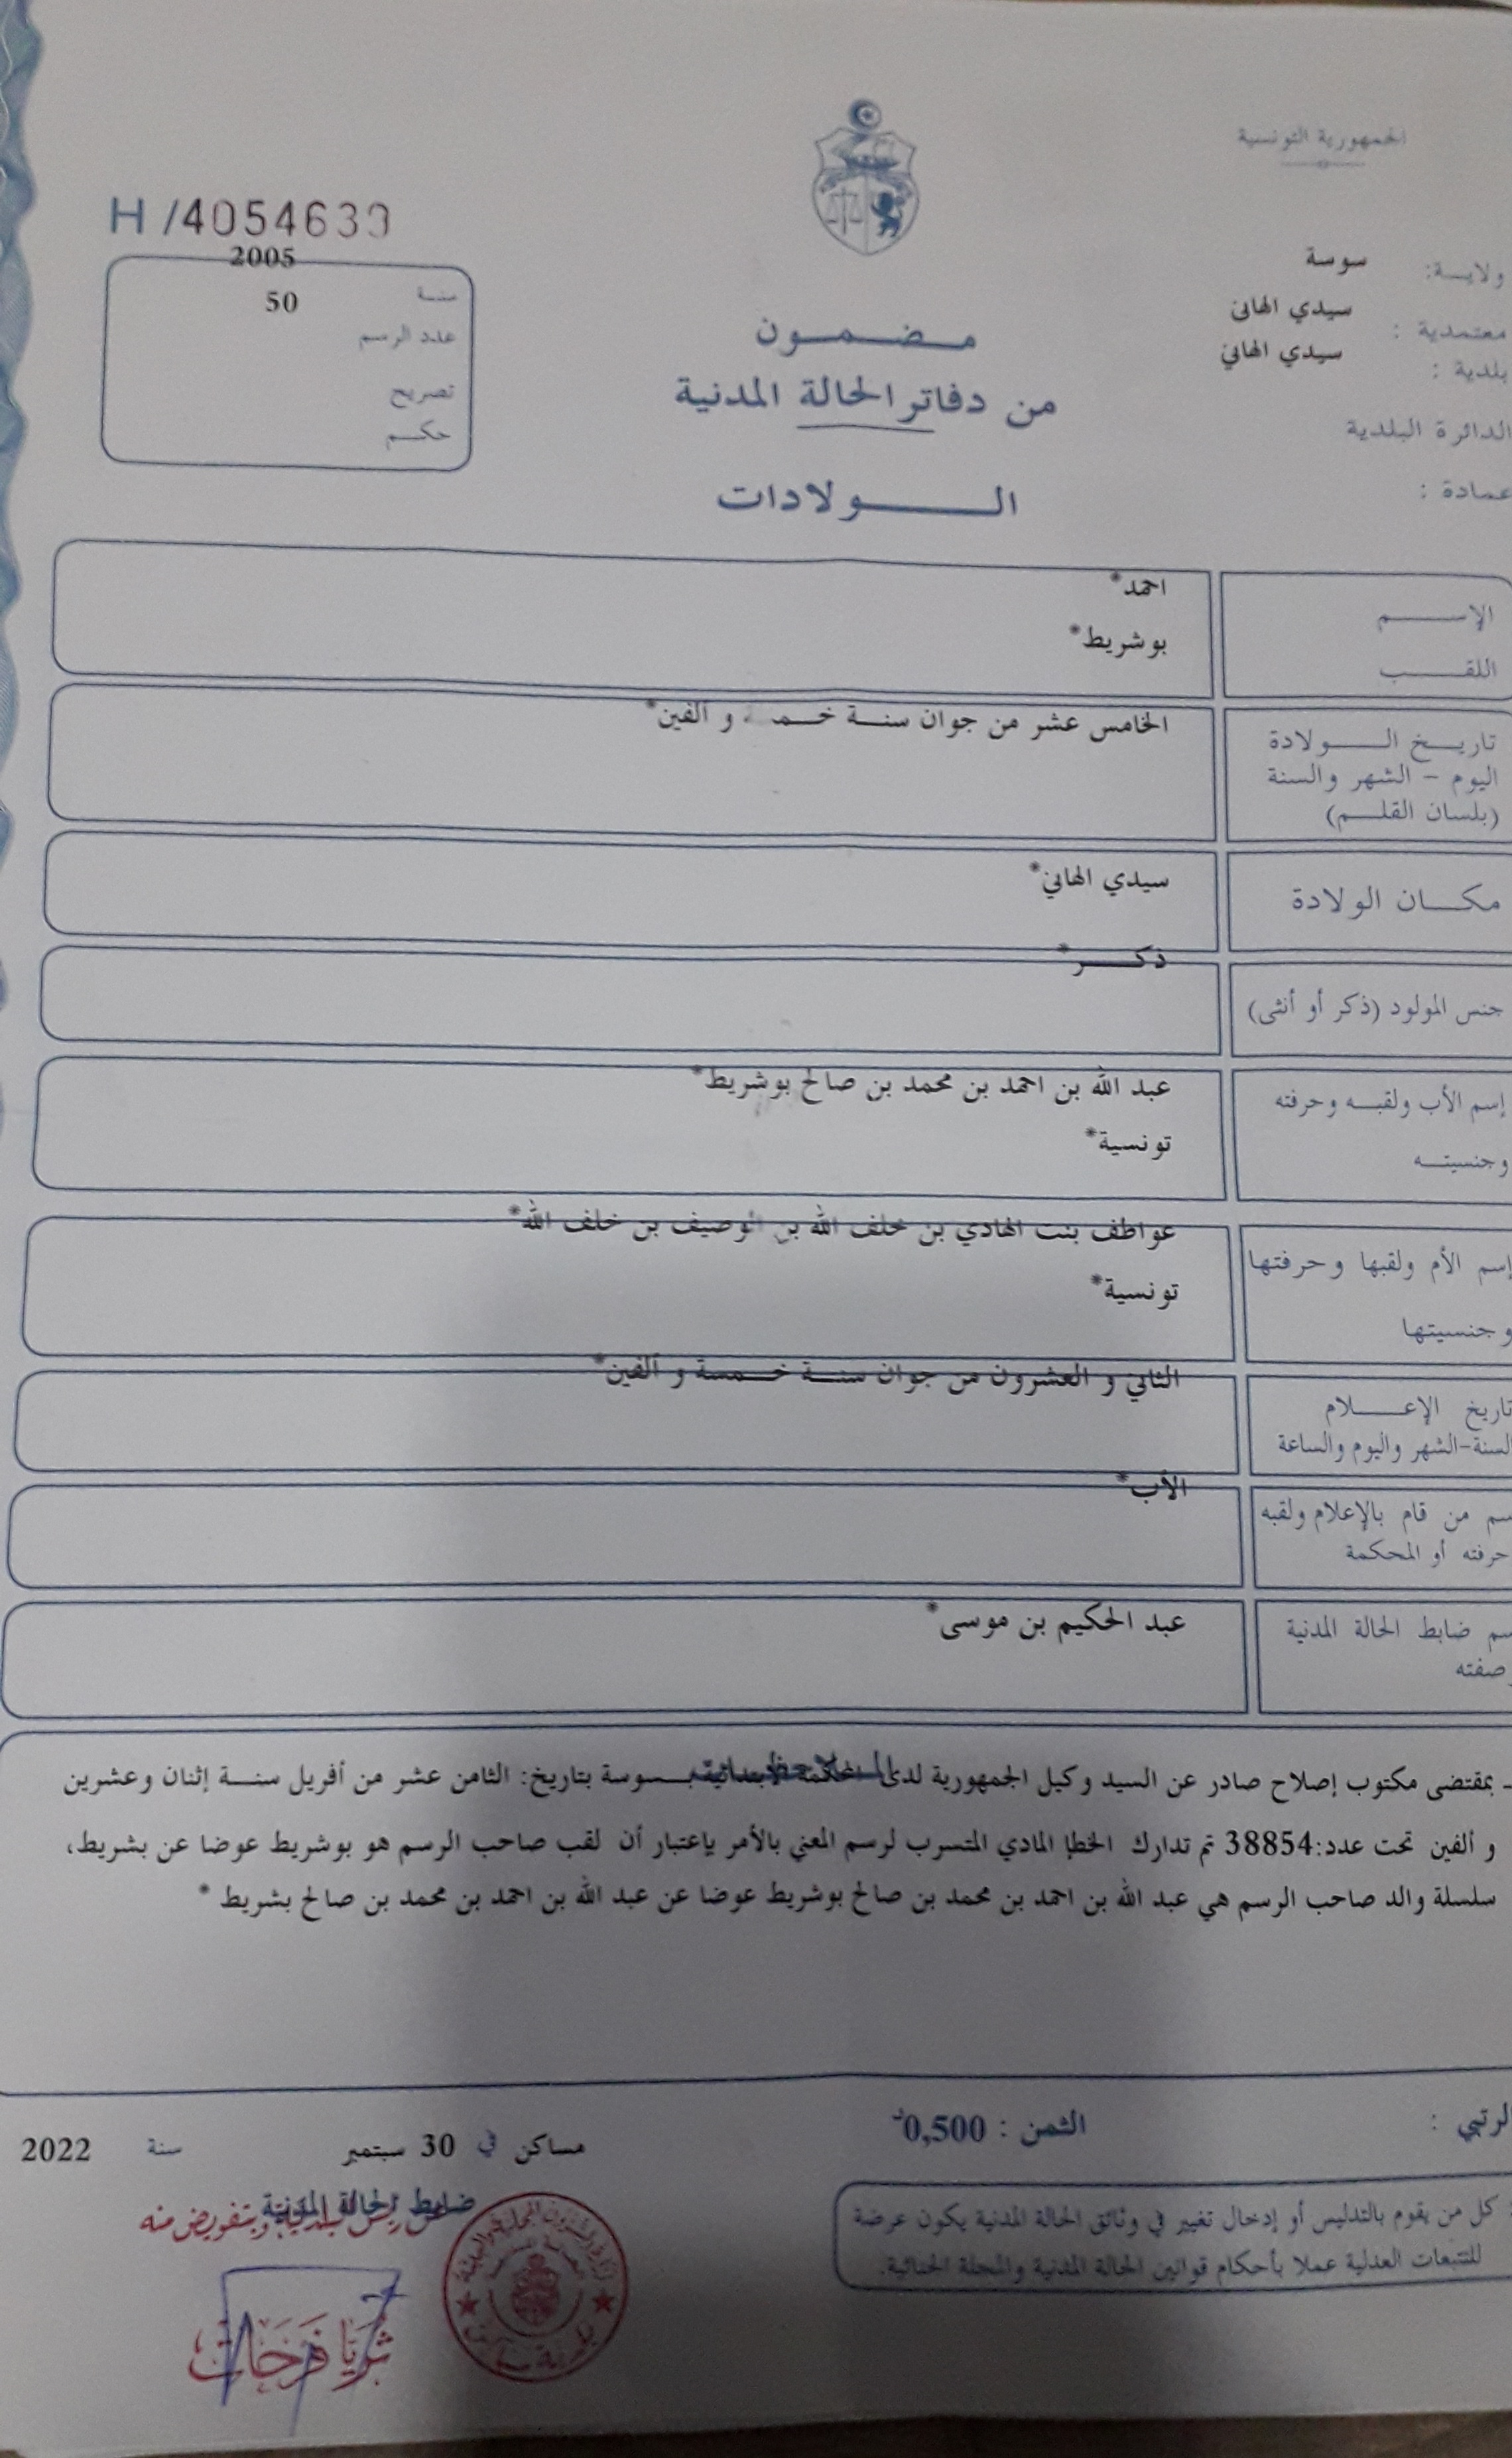 الجمهورية التونسية
H /4054639
ولاية: سوسة
معتمدية : سيدي الهاني
بلدية : سيدي الهاني
الدائرة البلدية
عمادة :
مضمون
من دفاتر الحالة المدنية
الولادات
2005
سنة
50
عدد الرسم
تصريح
حكم
الإسم
احمد*
اللقب
بوشريط*
تاريخ الولادة
اليوم - الشهر والسنة
(بلسان القلم)
الخامس عشر من جوان سنة و ألفين*
مكان الولادة
سيدي الهاني*
جنس المولود (ذكر أو أنثى)
ذكر*
إسم الأب ولقبه وحرفته
عبد الله بن احمد بن محمد بن صالح بوشريط*
وجنسيته
تونسية*
إسم الأم ولقبها وحرفتها
عواطف بنت الهادي بن خلف الله بن الوصيف بن خلف الله*
وجنسيتها
تونسية*
تاريخ الإعلام
السنة-الشهر واليوم والساعة
الثاني و العشرون من جوان سنة خمسة و ألفين*
من قام بالإعلام ولقبه
حرفته أو المحكمة
الأب*
ضابط الحالة المدنية
صفته
عبد الحكيم بن موسى*
- بمقتضى مكتوب إصلاح صادر عن السيد وكيل الجمهورية لدى المحكمة الابتدائية بسوسة بتاريخ: الثامن عشر من أفريل سنة إثنان وعشرين
و ألفين تحت عدد:38854 تم تدارك الخطإ المادي المتسرب لرسم المعني بالأمر بإعتبار أن لقب صاحب الرسم هو بوشريط عوضا عن بشريط،
سلسلة والد صاحب الرسم هي عبد الله بن احمد بن محمد بن صالح بوشريط عوضا عن عبد الله بن احمد بن محمد بن صالح بشريط *
الثمن : 0,500د
مساكن في 30 سبتمبر سنة 2022
ضابط الحالة المدنية
وبتفويض منه
ثريا فرحات
كل من يقوم بالتدليس أو إدخال تغيير في وثائق الحالة المدنية يكون عرضة
للتتبعات العدلية عملا بأحكام قوانين الحالة المدنية والمجلة الجنائية.